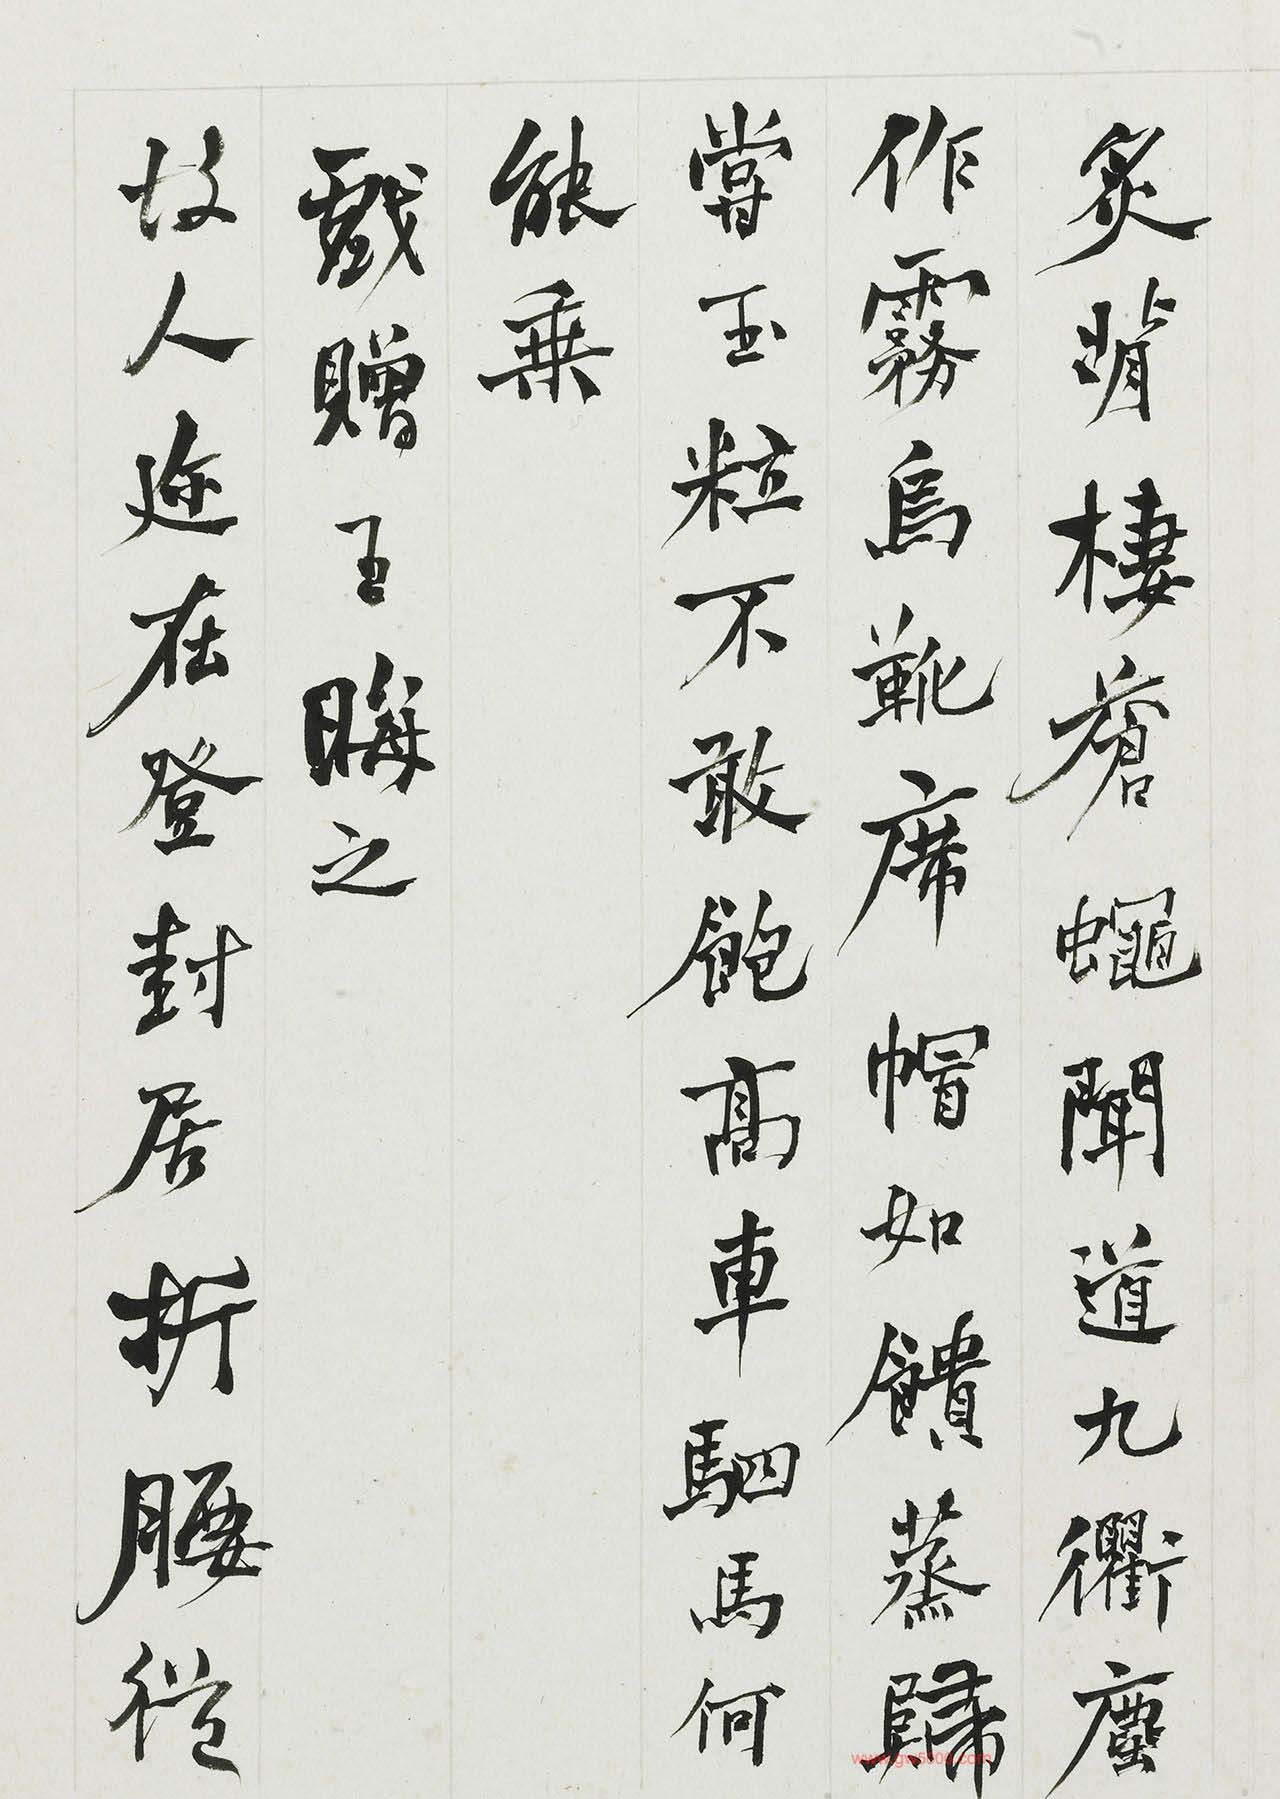 炙背棲蒼蠅聞道九衢塵
作霧烏靴席帽如饙蒸歸
嘗玉粒不敢飽高車駟馬何
能乘
戲贈王晦之
故人迩在登封居折腰從
www.gw5000.com